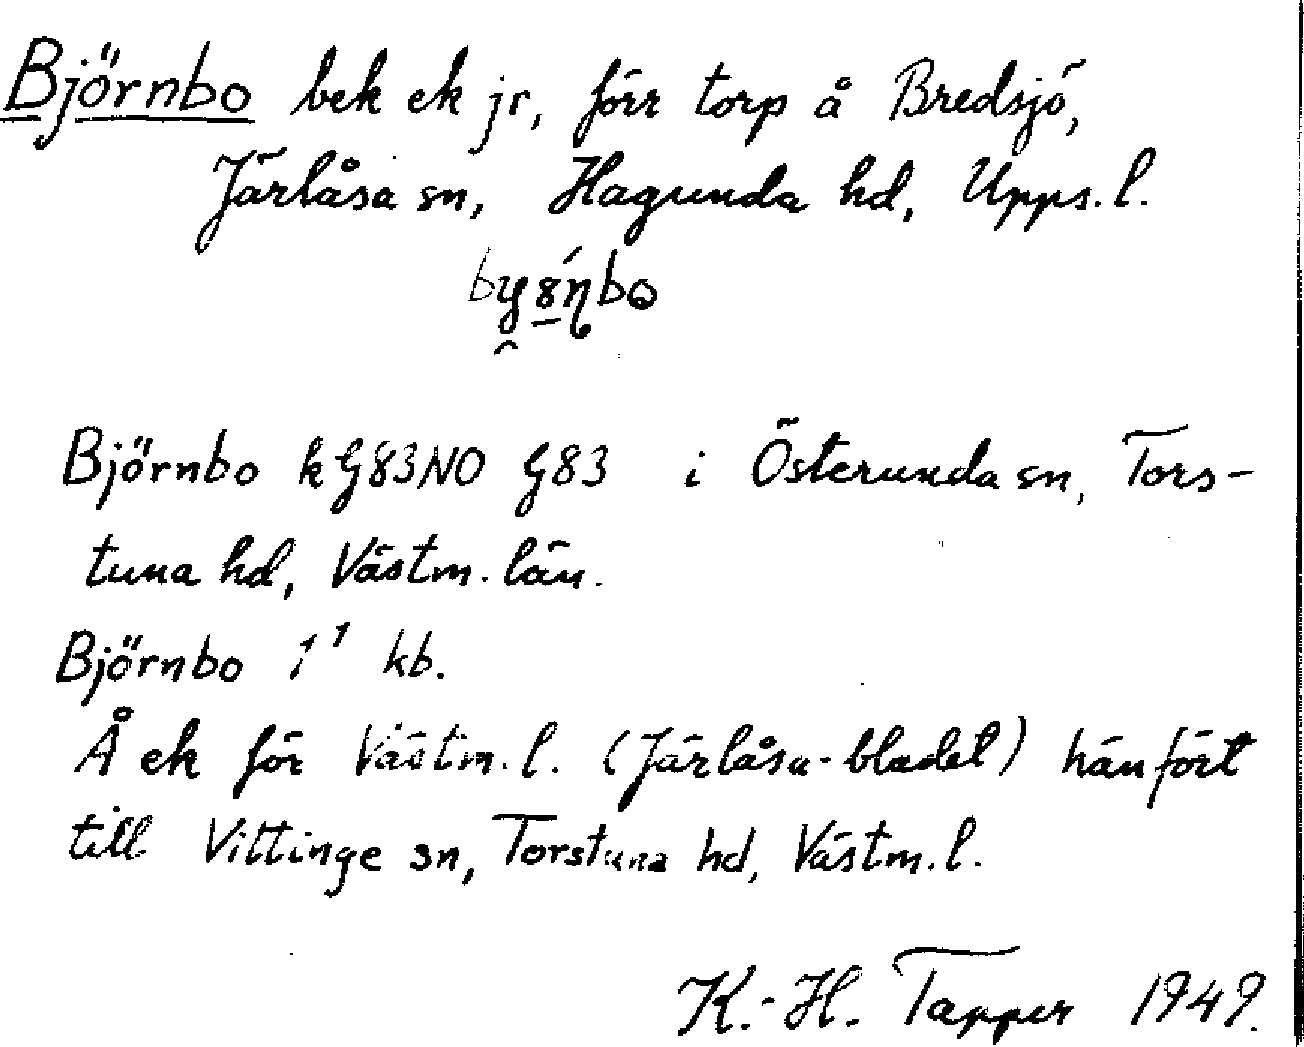 Björnbo bek ek jr, förr torp å Bredsjö,
Järlåsa sn, Hagunda hd, Upps. l.
Björnbo k G83NO G83 i Österunda sn, Tors-
tuna hd, Västm. län.
Björnbo 1¹ kb.
Å ek för Västm. l. (Järlåsa-bladet) hänfört
till Vittinge sn, Torstuna hd, Västm. l.
K.-H. Tapper 1949.